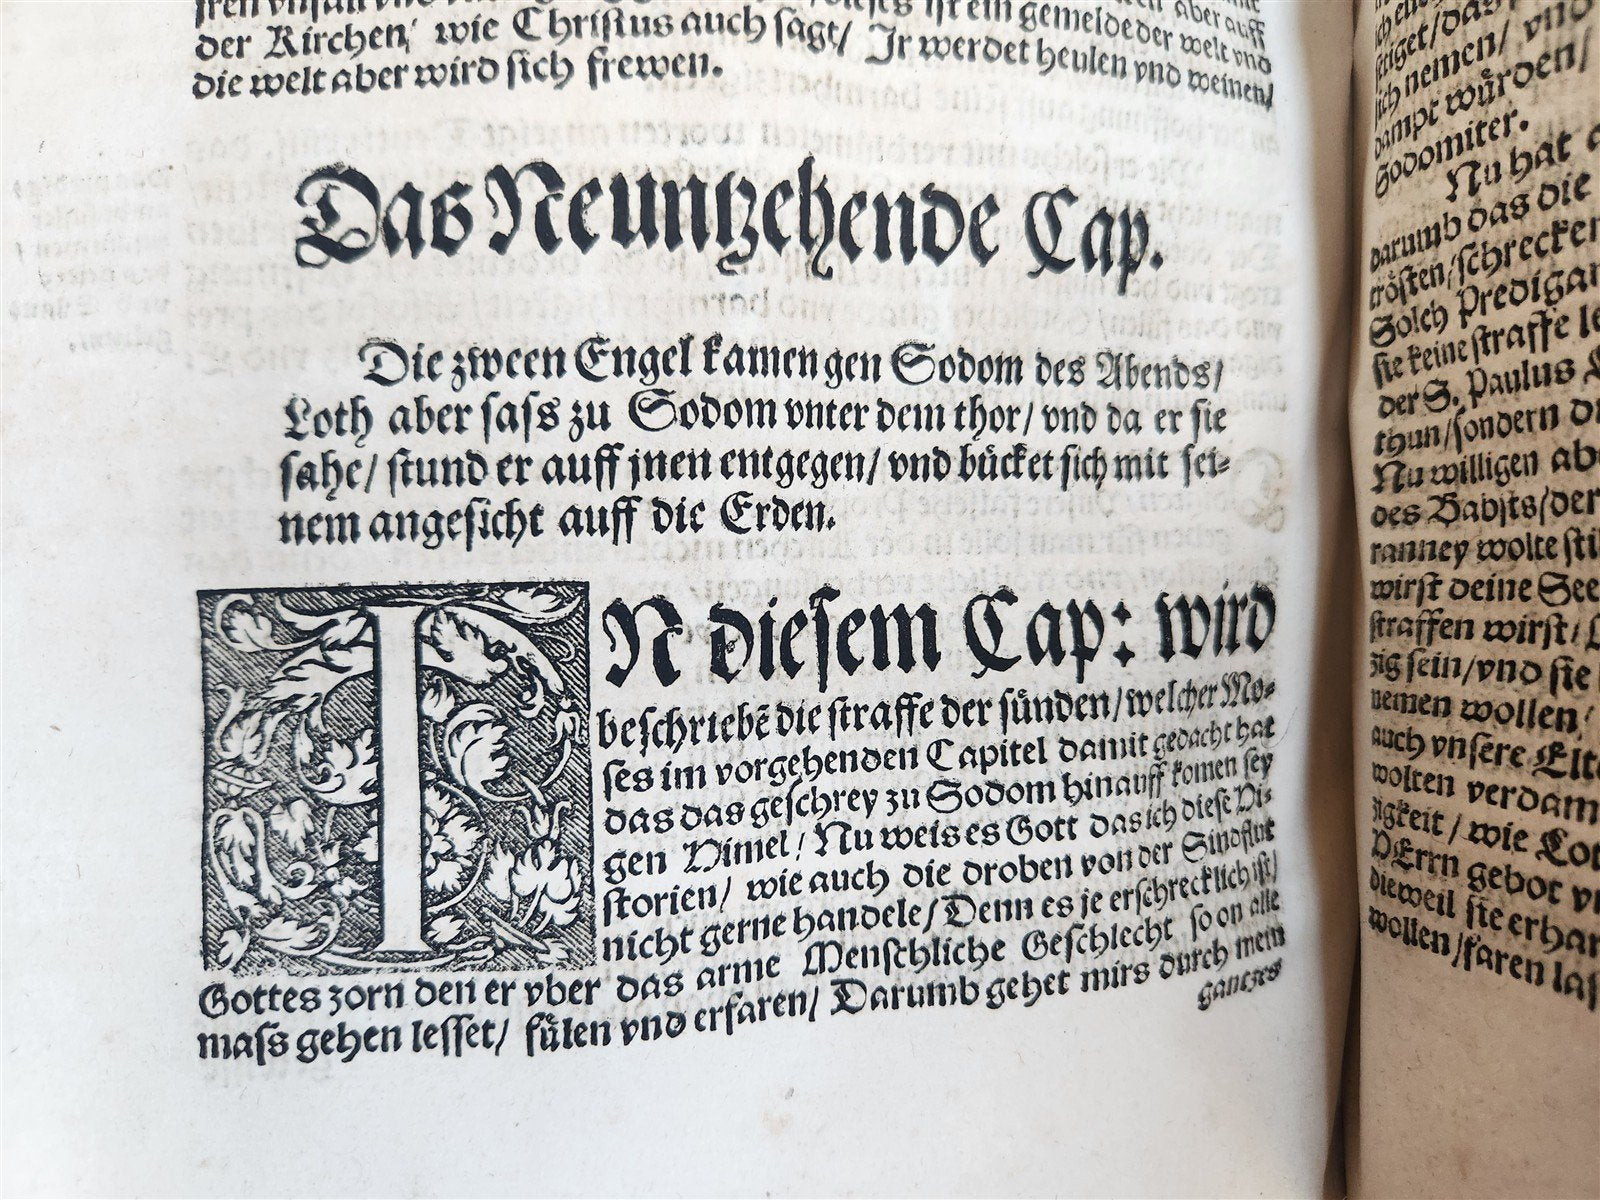 jren vnfall vnd dieses ist ein gemelde der welt vnd aber auff
der Kirchen, wie Christus auch sagt/ Jr werdet heulen vnd weinen/
die welt aber wird sich frewen.
Das Neuntzehende Cap.
Die zween Engel kamen gen Sodom des Abends/
Loth aber sass zu Sodom vnter dem thor/ vnd da er sie
sahe/ stund er auff jnen entgegen/ vnd bücket sich mit sei-
nem angesicht auff die Erden.
IN diesem Cap: wird
beschriebē die straffe der sünden/ welcher Mo-
ses im vorgehenden Capitel damit gedacht hat
das das geschrey zu Sodom hinauff komen sey
gen Himel/ Nu weis es Gott das ich diese Hi-
storien/ wie auch die droben von der Sindflut
nicht gerne handele/ Denn es je erschrecklich ist/
Gottes zorn den er vber das arme Menschliche Geschlecht so on alle
mass gehen lesset/ fülen vnd erfaren/ Darumb gehet mirs durch mein
gantzes
sich nemen/ vnd
dampt würden/
Sodomiter.
Nu hat
darumb das die
trösten/ schrecken
Solch Predigam
sie keine straffe
der S. Paulus
thun/ sondern
Nu willigen
des Babsts/ der
ranney wolte
wirst deine See
straffen wirst/
zig sein/ vnd sie
nemen wollen/
auch vnsere Elte
wolten verdam
zigkeit/ wie Lot
HErrn gebot
dieweil sie erhar
wollen/ faren las